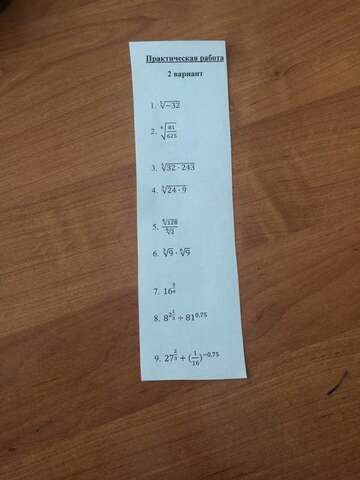 Практическая работа
2 вариант
1. ⁵√−32
2. ⁴√(81/625)
3. ⁵√(32 · 243)
4. ³√(24 · 9)
5. ⁶√128 / ⁶√2
6. ³√9 · ⁶√9
7. 16^(3/4)
8. 8^(2 1/3) ÷ 81^0,75
9. 27^(2/3) + (1/16)^−0,75